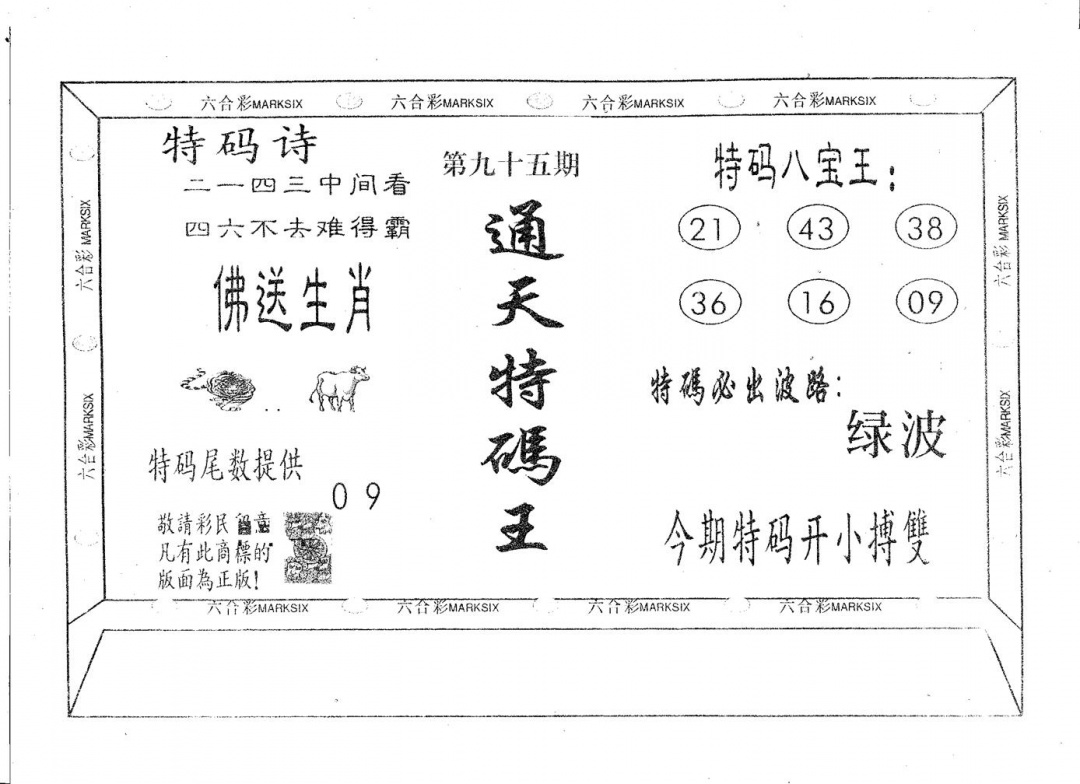 六合彩MARKSIX 六合彩MARKSIX 六合彩MARKSIX 六合彩MARKSIX
特码诗
二一四三中间看
四六不去难得霸
佛送生肖
特码尾数提供
09
敬請彩民留意
凡有此商標的
版面為正版!
第九十五期
通天特碼王
特码八宝王:
21 43 38
36 16 09
特碼必出波路:
绿波
今期特码开小搏雙
六合彩 MARKSIX
六合彩MARKSIX
六合彩 MARKSIX
六合彩MARKSIX
六合彩MARKSIX 六合彩MARKSIX 六合彩MARKSIX 六合彩MARKSIX